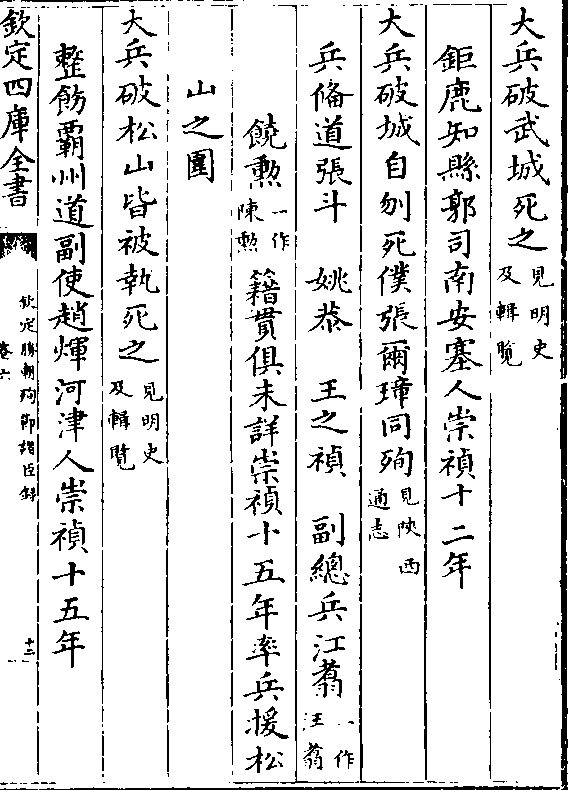 大兵破武城死之見明史及輯覽
鉅鹿知縣郭司南安塞人崇禎十二年
大兵破城自刎死僕張爾璋同殉見陜西通志
兵備道張斗　姚恭　王之禎　副總兵江翥一作汪翥
饒勲一作陳勲籍貫俱未詳崇禎十五年率兵援松
山之圍
大兵破松山皆被執死之見明史及輯覽
整飭霸州道副使趙煇河津人崇禎十五年
欽定四庫全書
欽定勝朝殉節諸臣録
卷六
十二